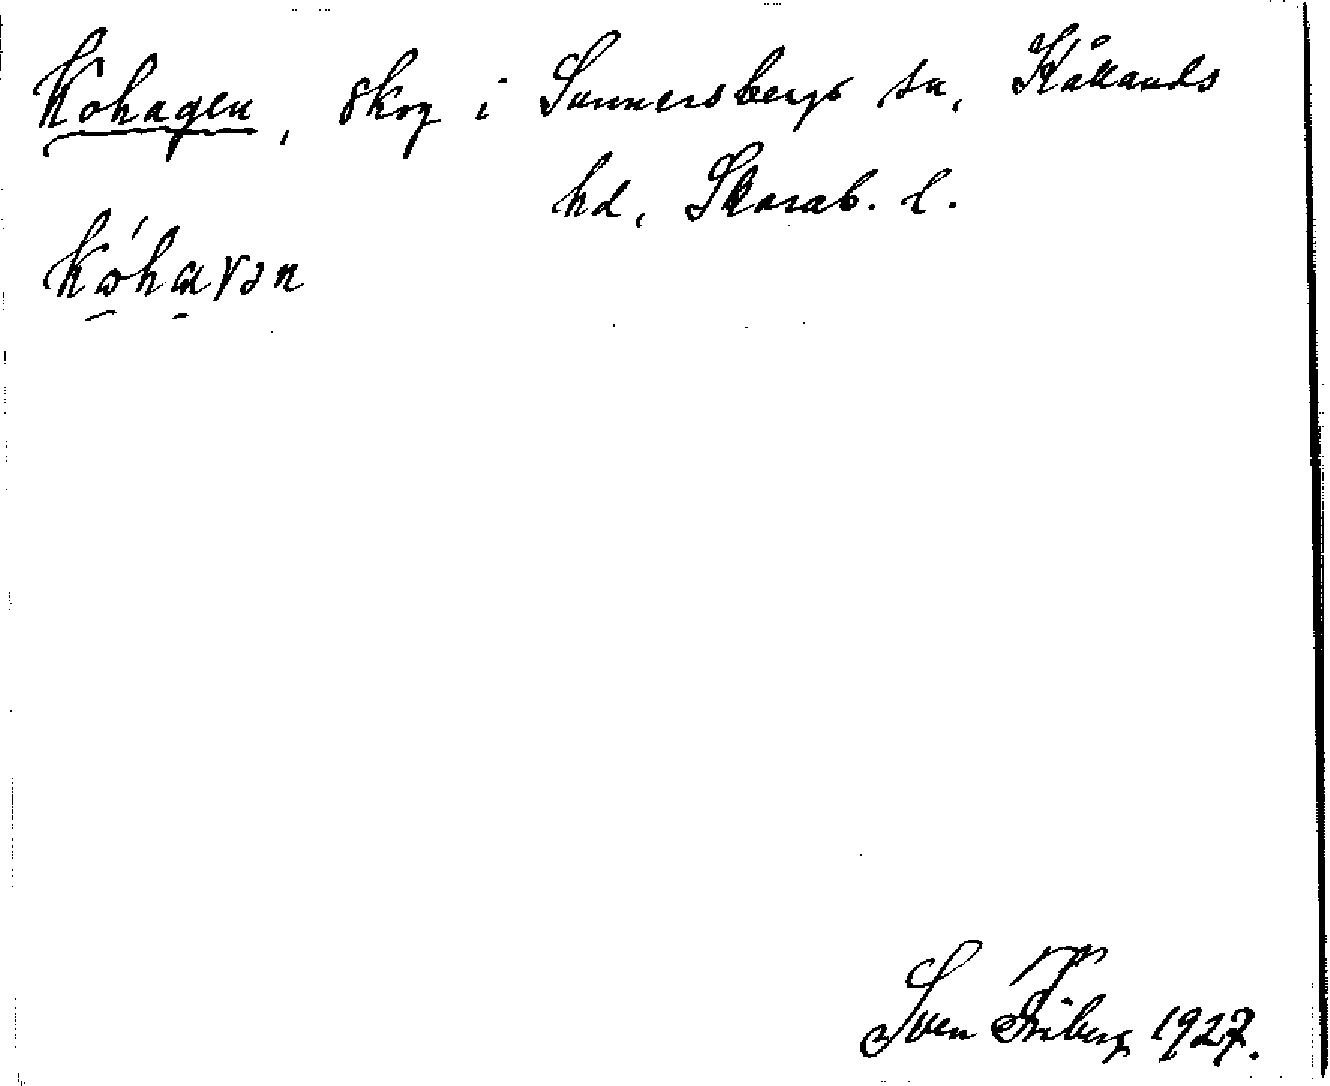 Kohagen, skog i Sunnersbergs sn, Kållands
hd, Skarab. l.
kóhaɣən
Sven Friberg 1927.